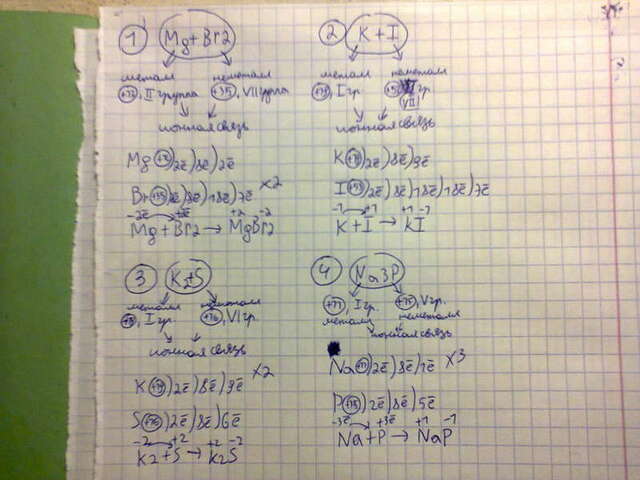 1 Mg+Br2
металл неметалл
+12, II группа +35, VII группа
ионная связь
Mg +12 )2ē)8ē)2ē
Br +35 )2ē)8ē)18ē)7ē ×2
-2ē +2ē +2 -2
Mg + Br2 → MgBr2
2 K+I
металл неметалл
+19, I гр. +53 гр.
(VII)
ионная связь
K +19 )2ē)8ē)9ē
I +53 )2ē)8ē)18ē)18ē)7ē
-1 +1 +1 -1
K + I → KI
3 K2+S
металл неметалл
+19, I гр. +16, VI гр.
ионная связь
K +19 )2ē)8ē)9ē ×2
S +16 )2ē)8ē)6ē
-2 +2 +2 -2
K2 + S → K2S
4 Na3P
+11, I гр. +15, V гр.
металл неметалл
ионная связь
Na +11 )2ē)8ē)1ē ×3
P +15 )2ē)8ē)5ē
-3ē +3ē +1 -1
Na + P → NaP